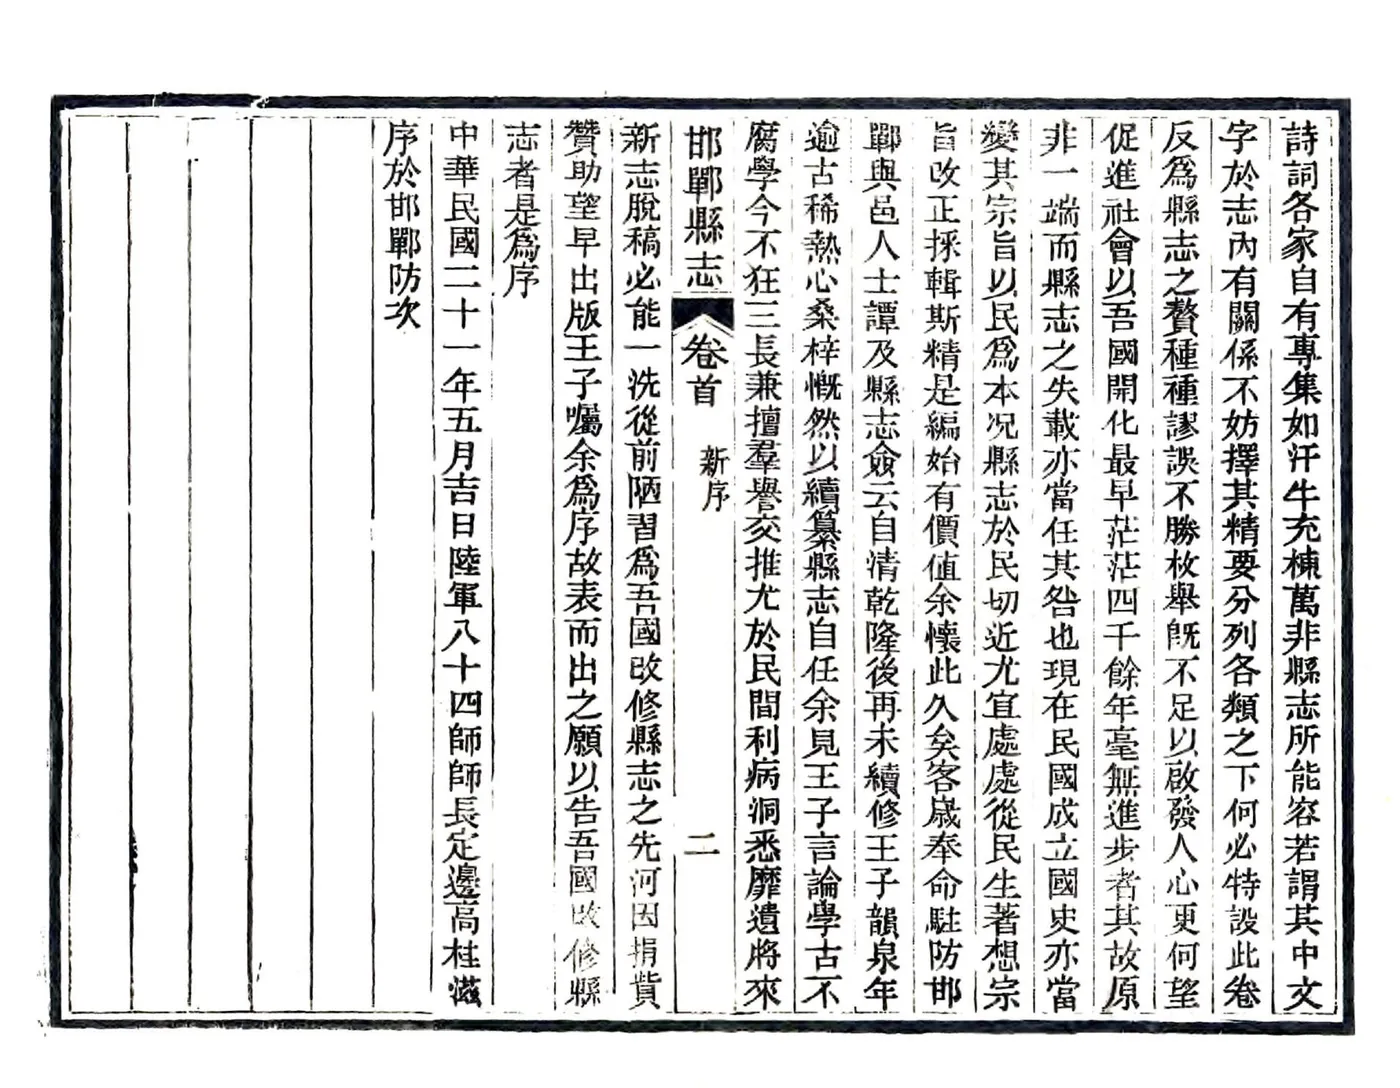 詩詞各家自有專集如汗牛充棟萬非縣志所能容若謂其中文
字於志內有關係不妨擇其精要分列各類之下何必特設此卷
反爲縣志之贅種種謬誤不勝枚舉旣不足以啟發人心更何望
促進社會以吾國開化最早茫茫四千餘年毫無進步者其故原
非一端而縣志之失載亦當任其咎也現在民國成立國史亦當
變其宗旨以民爲本况縣志於民切近尤宜處處從民生著想宗
旨改正採輯斯精是編始有價値余懷此久矣客歲奉命駐防邯
鄲與邑人士譚及縣志僉云自清乾隆後再未續修王子韻泉年
逾古稀熱心桑梓慨然以續纂縣志自任余見王子言論學古不
腐學今不狂三長兼擅羣譽交推尤於民間利病洞悉靡遺將來
邯鄲縣志 卷首 新序 二
新志脫稿必能一洗從前陋習爲吾國改修縣志之先河因捐貲
贊助望早出版王子囑余爲序故表而出之願以告吾國改修縣
志者是爲序
中華民國二十一年五月吉日陸軍八十四師師長定邊高桂滋
序於邯鄲防次